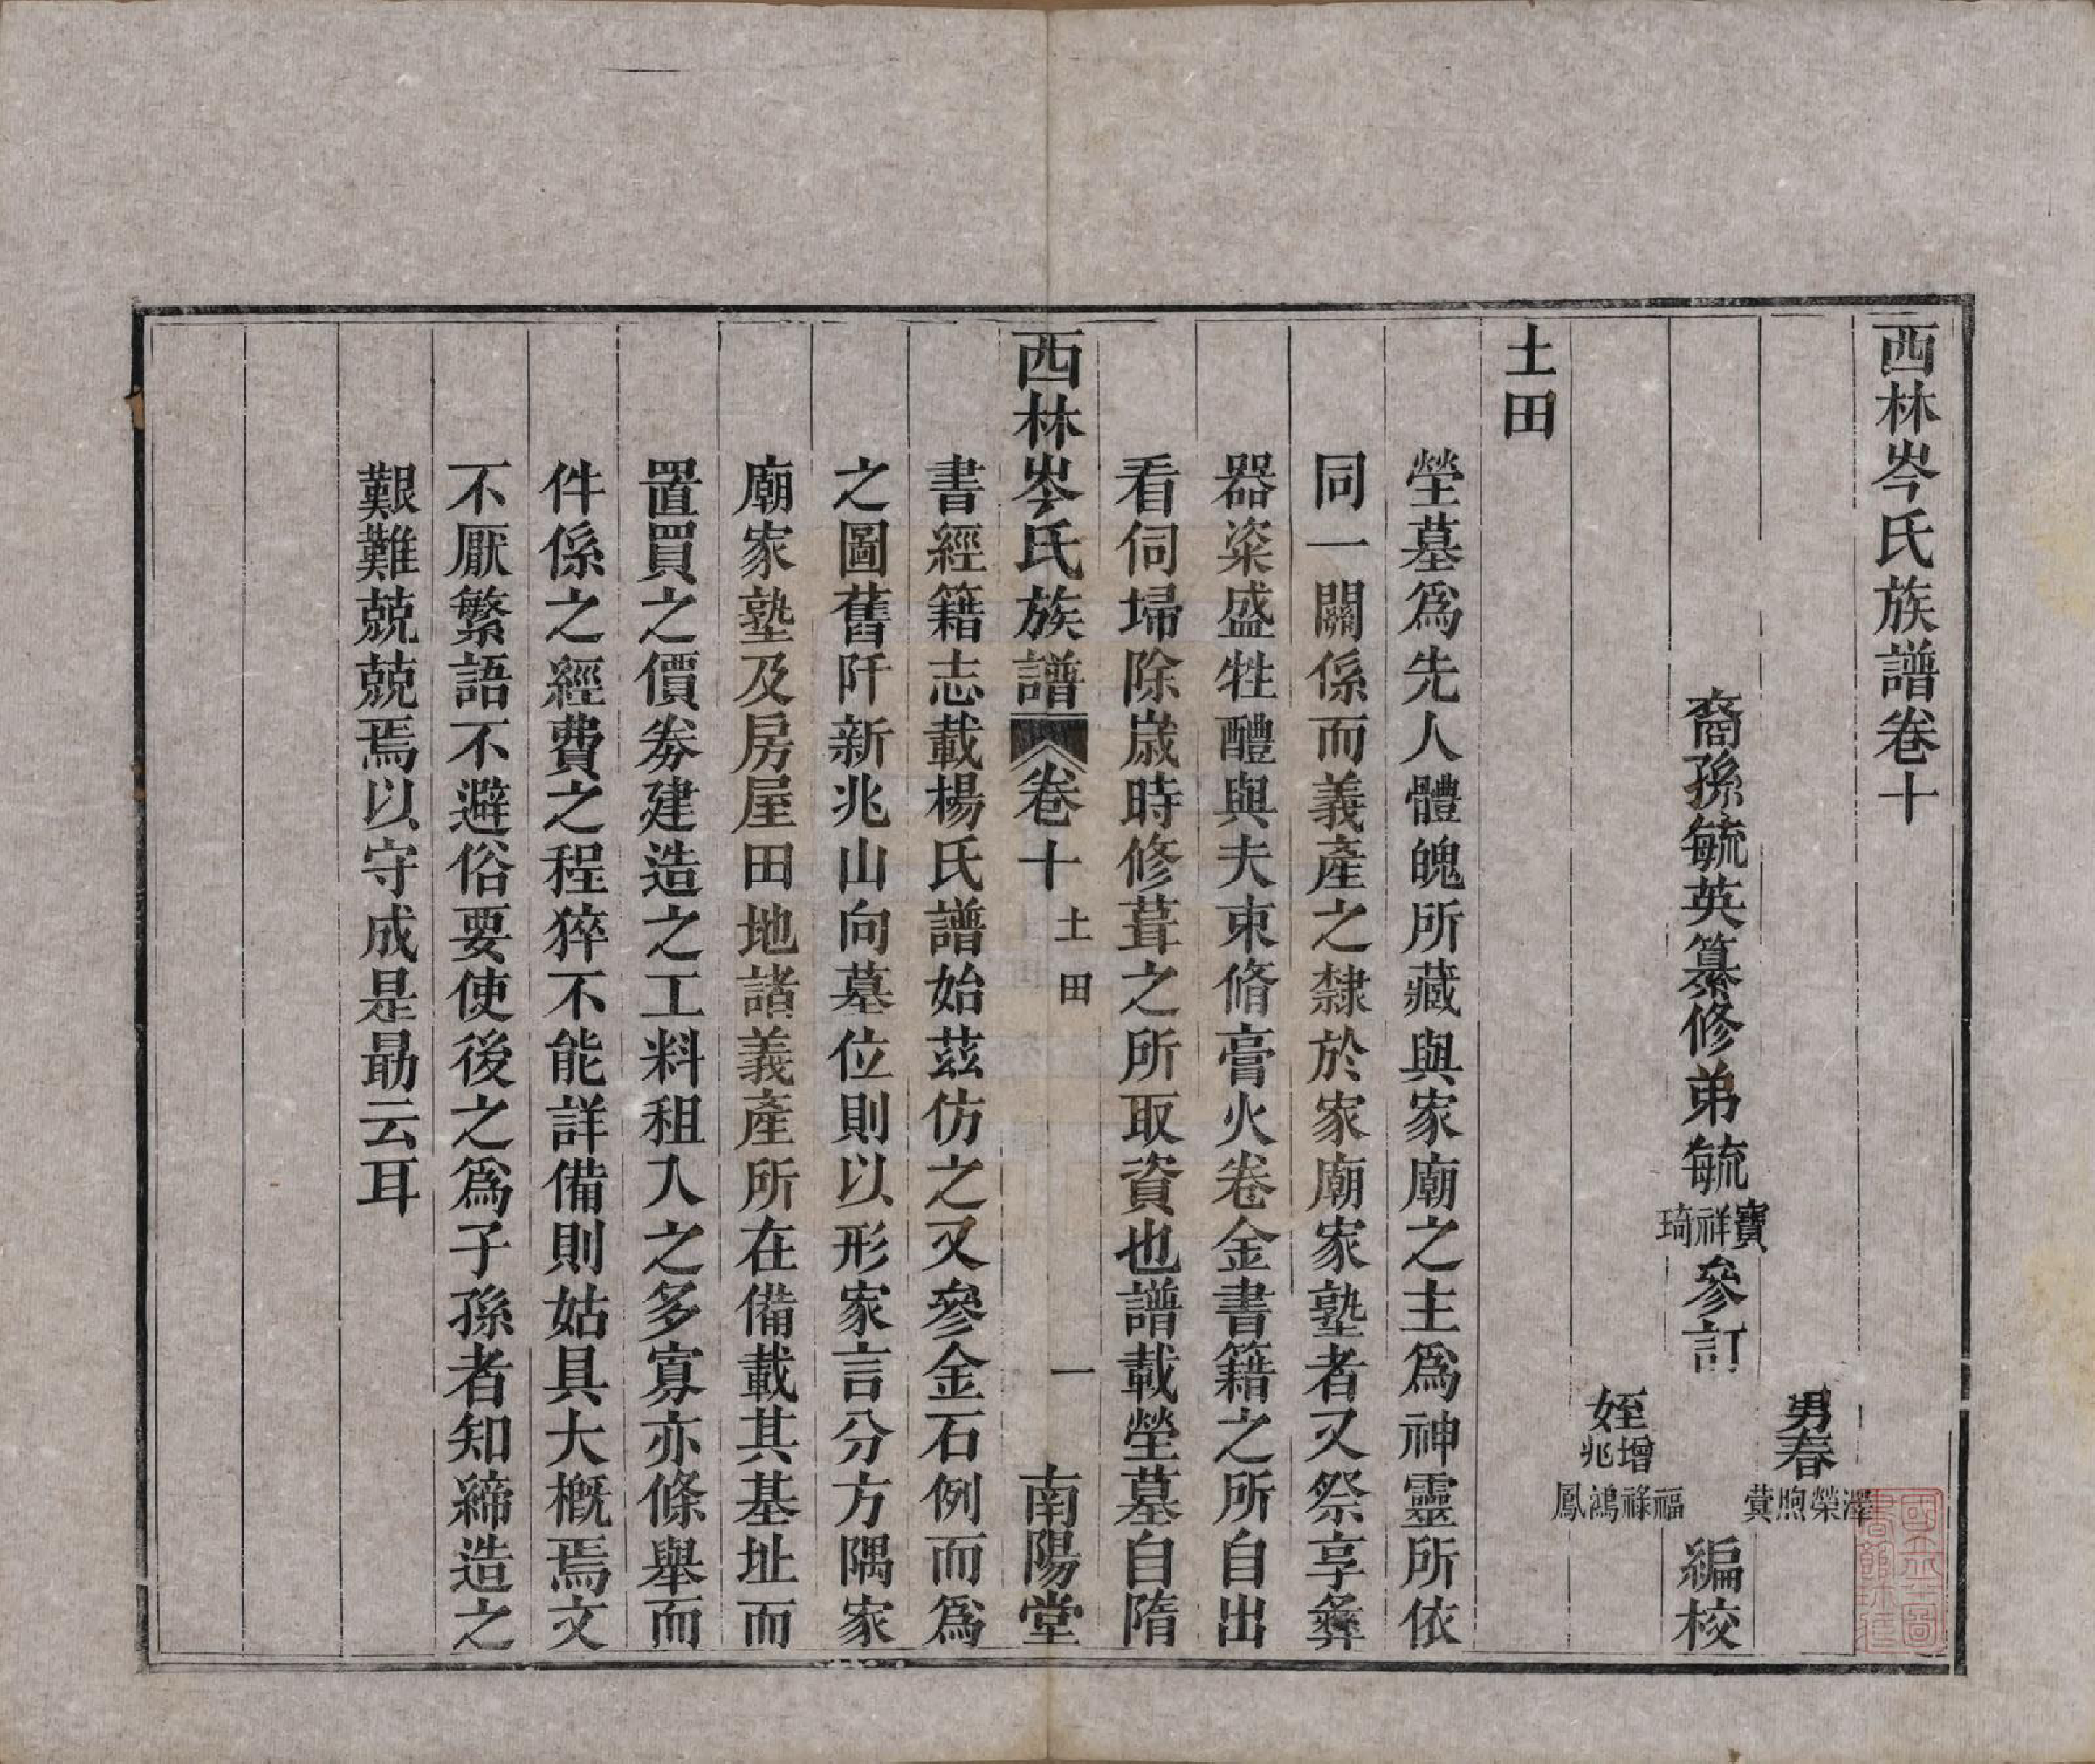 西林岑氏族譜卷十
裔孫毓英纂修弟毓寶祥琦參訂男春澤榮煦蓂姪增兆福祿鴻鳳編校
土田
塋墓爲先人體魄所藏與家廟之主爲神靈所依
同一關係而義產之隸於家廟家塾者又祭享彝
器粢盛牲醴與夫束脩膏火卷金書籍之所自出
看伺埽除歲時修葺之所取資也譜載塋墓自隋
西林岑氏族譜 卷十 土田 一 南陽堂
書經籍志載楊氏譜始茲仿之又參金石例而爲
之圖舊阡新兆山向墓位則以形家言分方隅家
廟家塾及房屋田地諸義產所在備載其基址而
置買之價劵建造之工料租入之多寡亦條舉而
件係之經費之程猝不能詳備則姑具大概焉文
不厭繁語不避俗要使後之爲子孫者知締造之
艱難兢兢焉以守成是勗云耳